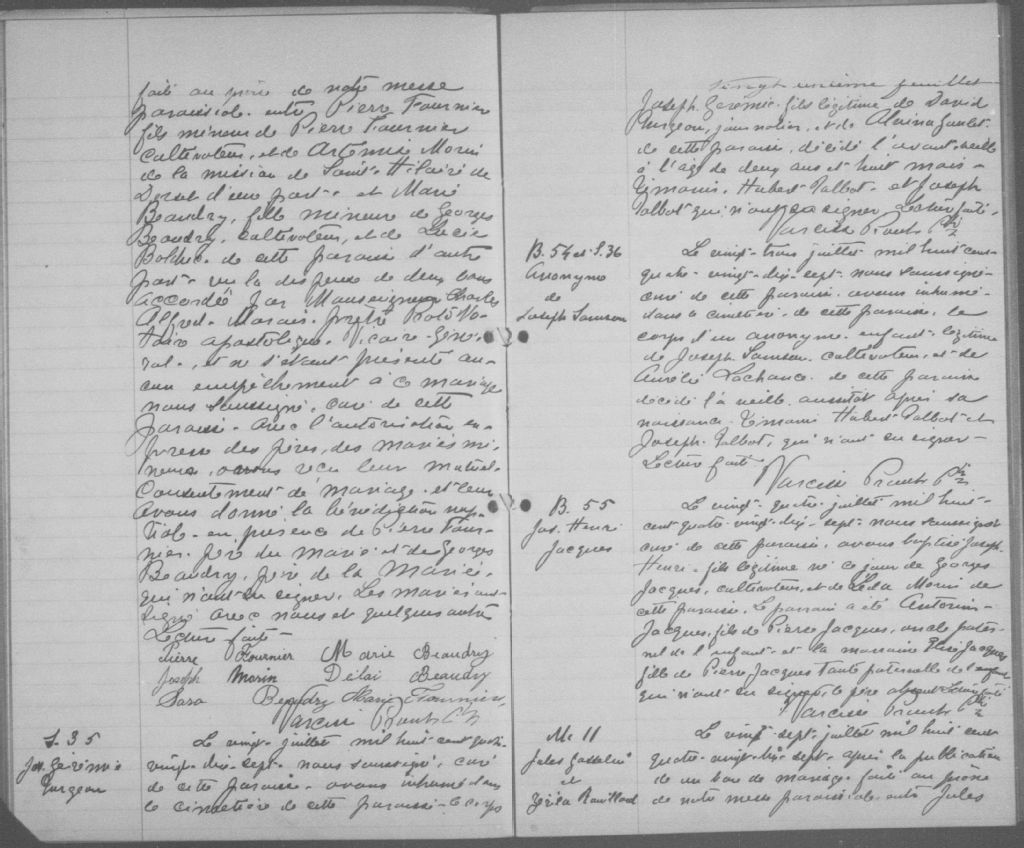 fait au prône de notre messe
paroissiale entre Pierre Fournier
fils mineur de Pierre Fournier
cultivateur, et de Artémise Morin
de la mission de Saint-Hilaire de
Dorset d'une part - et Marie
Beaudry, fille mineure de Georges
Beaudry, cultivateur, et de Lucie
Bolduc de cette paroisse d'autre
part - vu la dispense de deux bans
accordée par Monseigneur Charles
Alfred Marois, prêtre Proto-No-
taire apostolique, Vicaire-Géné-
ral, et ne s'étant présenté au-
cun empêchement à ce mariage
nous soussigné, curé de cette
paroisse - avec l'autorisation ex-
presse des pères, des mariés mi-
neurs, avons reçu leur mutuel
consentement de mariage - et leur
avons donné la bénédiction nup-
tiale - en présence de Pierre Four-
nier, père du marié et de Georges
Beaudry, père de la mariée,
qui n'ont su signer. Les mariés ont
signé avec nous et quelques autres
Lecture faite -
Pierre Fournier Marie Beaudry
Joseph Morin Délai Beaudry
Sara Beaudry Marie Fournier
Narcisse Proulx Ptr
S. 35
Jos. Gérémie
Turgeon
Le vingt - juillet mil huit cent quatre-
vingt-dix-sept - nous soussigné, curé
de cette paroisse - avons inhumé dans
le cimetière de cette paroisse - le corps
vingt unième feuillet
Joseph Geremie fils légitime de David
Turgeon, journalier, et de Alvina Goulet
de cette paroisse, décédé l'avant-veille
à l'age de deux ans et huit mois -
Témoins, Hubert Talbot - et Joseph
Talbot qui n'ont su signer, Lecture faite,
Narcisse Proulx Ptr
B. 54 et S. 36
Anonyme
de
Joseph Samson
Le vingt-trois juillet mil huit cent
quatre-vingt-dix-sept nous soussigné
curé de cette paroisse avons inhumé
dans le cimetière de cette paroisse, le
corps d'un anonyme enfant légitime
de Joseph Samson cultivateur, et de
Aurélie Lachance de cette paroisse
décédé la veille aussitôt après sa
naissance. Témoins Hubert Talbot et
Joseph Talbot, qui n'ont su signer -
Lecture faite
Narcisse Proulx Ptr
B. 55
Jos. Henri
Jacques
Le vingt-quatre juillet mil huit-
cent quatre-vingt-dix-sept nous soussigné
curé de cette paroisse, avons baptisé Joseph
Henri - fils légitime né ce jour de Georges
Jacques, cultivateur, et de Léda Morin de
cette paroisse. Le parrain a été Antonin
Jacques, fils de Pierre Jacques, oncle pater-
nel de l'enfant - et la marraine Jacques
fille de Pierre Jacques tante paternelle de l'enfant
qui n'ont su signer, le père absent Lecture faite
Narcisse Proulx Ptr
M. 11
Jules Gosselin
et
Zérila Rouillard
Le vingt-sept-juillet mil huit cent
quatre-vingt-dix-sept, après la publication
de un ban de mariage faite au prône
de notre messe paroissiale entre Jules